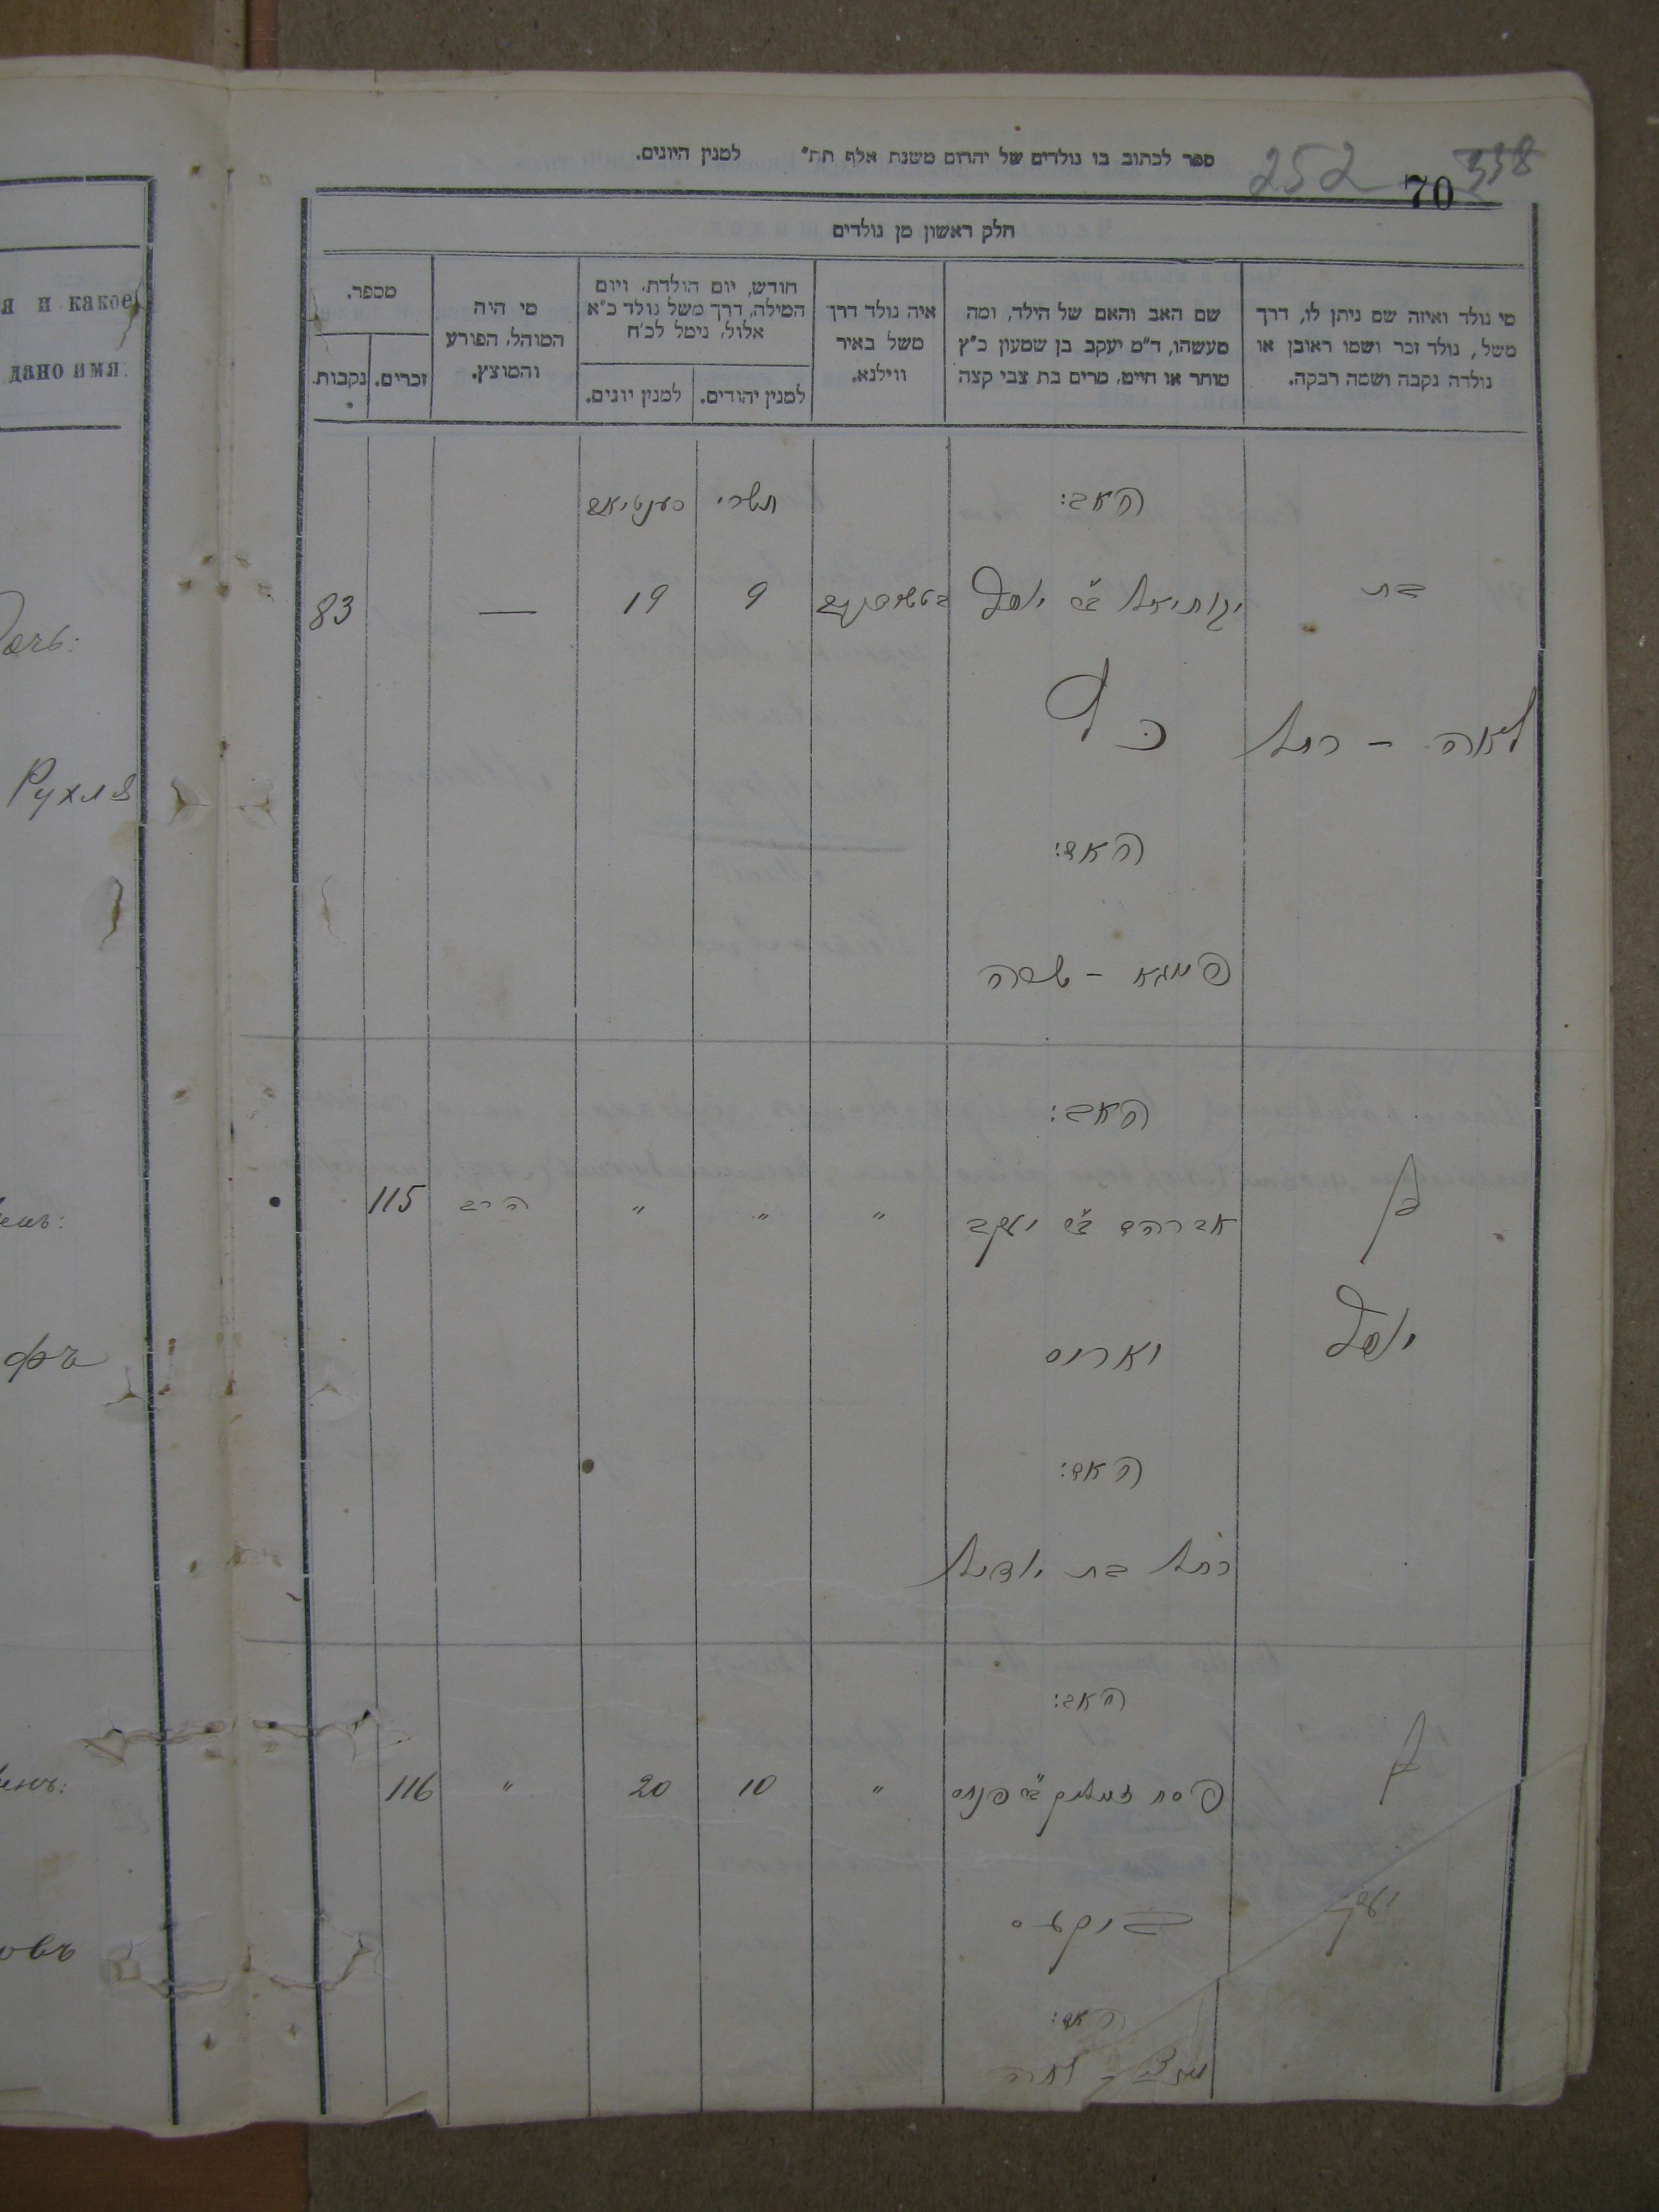 ספר לכתוב בו נולדים של יהודים משנת אלף תת" למנין היונים.
252
338
70
חלק ראשון מן נולדים
מי נולד ואיזה שם ניתן לו, דרך
משל, נולד זכר ושמו ראובן או
נולדה נקבה ושמה רבקה.
שם האב והאם של הילד, ומה
מעשהו, ד"מ יעקב בן שמעון כ"ץ
סוחר או חייט, מרים בת צבי קצה
איה נולד דרך
משל באיר
ווילנא.
חודש, יום הולדת, ויום
המילה, דרך משל נולד כ"א
אלול, נימל לכ"ח
למנין יהודים.
למנין יונים.
מי היה
המוהל, הפורע
והמוצץ.
מספר.
זכרים.
נקבות.
האב:
תשרי
בת
יקותיאל ב"ר יוסף
9
19
—
83
לאה - רחל
האם:
האב:
בן
אברהם ב"ר יעקב
"
"
"
הרב
115
יוסף
האם:
רחל בת
האב:
בן
פסח ב"ר פנחס
"
10
20
"
116
יעקב
האם:
לאה
я и какое
дано имя:
Дочь:
Рухля
фъ
овъ